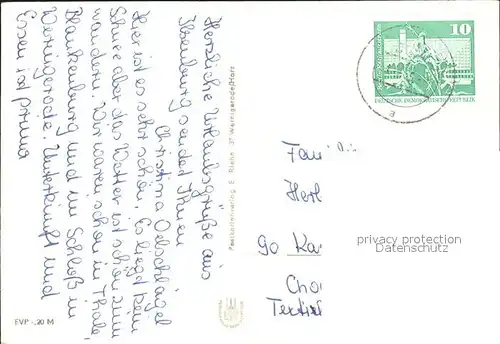 Herzliche Urlaubsgrüße aus
Ilsenburg sendet Ihnen
Christina Oelschlägel
Hier ist es sehr schön. Es liegt kein
Schnee aber das Wetter ist schön zum
wandern. Wir waren schon in Thale,
Blankenburg und im Schloß in
Wernigerode. Unterkunft und
Essen ist prima
EVP -,20 M
Postkartenverlag E. Riehn · 37 Wernigerode/Harz
10
DEUTSCHE DEMOKRATISCHE REPUBLIK
Fam
Herl
90 Ka
Cho
Textil
privacy protection
Datenschutz